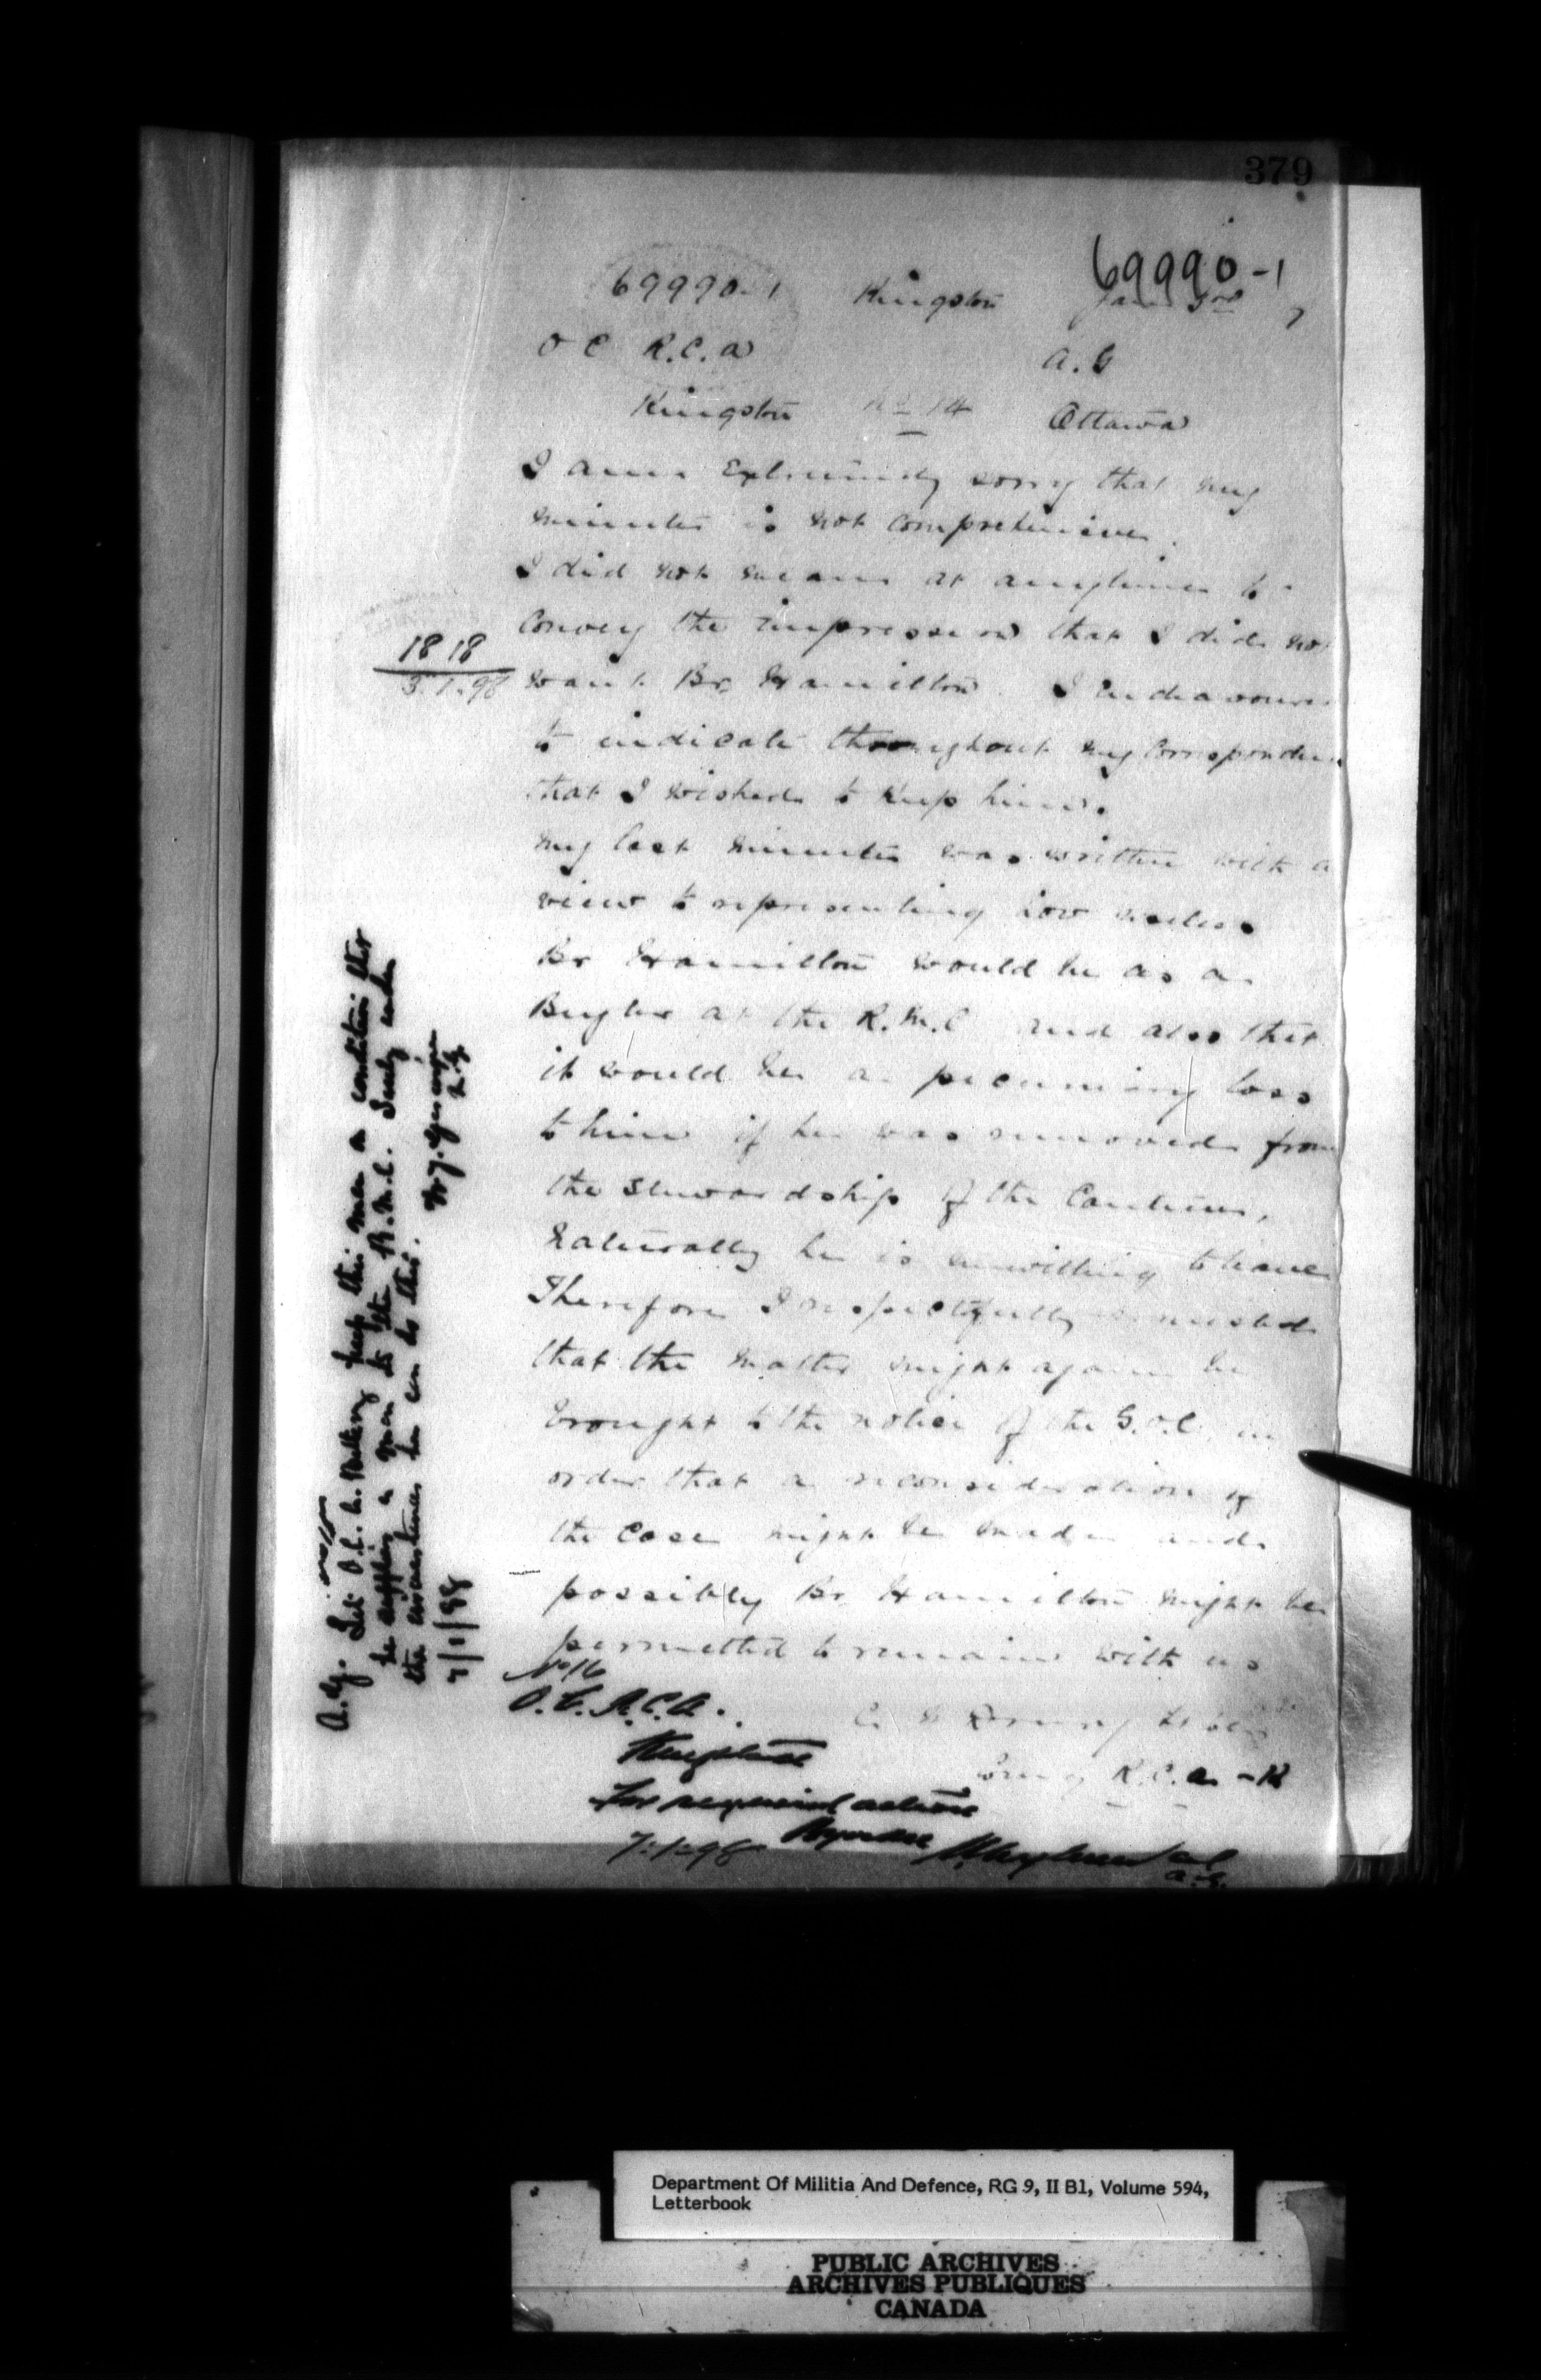 379
69990-1
69990-1 Kingston Jan 3rd
O C R.C.A A.G
Kingston No 14 Ottawa
I am Extremely sorry that my
minute is not comprehensive.
I did not mean at anytime to
convey the impression that I did not
18 18
3.1.98
want Br. Hamilton. I endeavoured
to indicate throughout my correspondence
that I wished to keep him.
My last minute was written with a
view to representing how useless
Br Hamilton would be as a
Bugler at the R.M.C and also that
it would be a pecuniary loss
to him if he was removed from
the stewardship of the Canteen,
Naturally he is unwilling to leave
Therefore I respectfully requested
that the matter might again be
brought to the notice of the G.O.C. in
order that a reconsideration of
the case might be made and
possibly Br. Hamilton might be
permitted to remain with us
Lt Col
Comg R.C.A - K
No 16
O.C. R.C.A.
Kingston
For required action
7.1.98
A.G.
A.G. No 15
Let O.C.A. Battery keep this man on condition that
he supplies a man to the R.M.C. Surely under
the circumstances he can do this.
7/1/98
Department Of Militia And Defence, RG 9, II B1, Volume 594,
Letterbook
PUBLIC ARCHIVES
ARCHIVES PUBLIQUES
CANADA